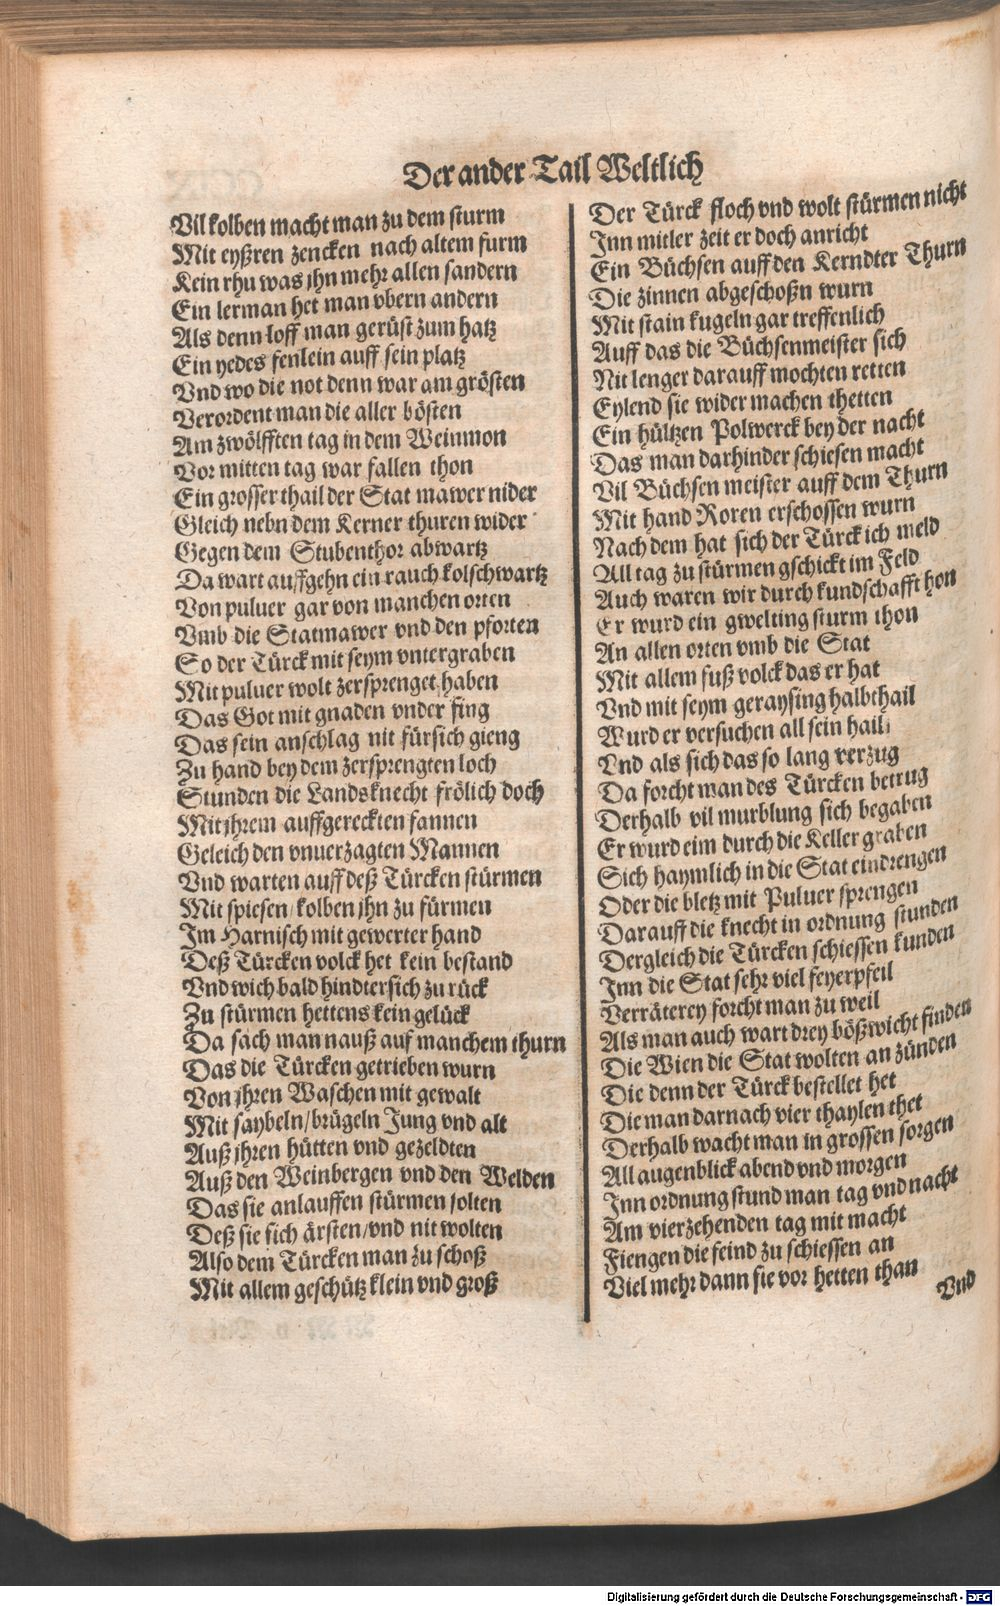 Der ander Tail Weltlich
Vil kolben macht man zu dem sturm
Mit eyßren zencken nach altem furm
Kein rhu was jhn mehr allen sandern
Ein lerman het man vbern andern
Als denn loff man gerüst zum hatz
Ein yedes fenlein auff sein platz
Vnd wo die not denn war am grösten
Verordent man die aller bösten
Am zwölfften tag in dem Weinmon
Vor mitten tag war fallen thon
Ein grosser thail der Stat mawer nider
Gleich nebn dem Kerner thuren wider
Gegen dem Stubenthor abwartz
Da wart auffgehn ein rauch kolschwartz
Von puluer gar von manchen orten
Vmb die Statmawer vnd den pforten
So der Türck mit seym vntergraben
Mit puluer wolt zersprenget haben
Das Got mit gnaden vnder fing
Das sein anschlag nit fürsich gieng
Zu hand bey dem zersprengten loch
Stunden die Landsknecht frölich doch
Mit jhrem auffgereckten fannen
Geleich den vnuerzagten Mannen
Vnd warten auff deß Türcken stürmen
Mit spiesen/ kolben jhn zu fürmen
Im Harnisch mit gewerter hand
Deß Türcken volck het kein bestand
Vnd wich bald hindtersich zu rück
Zu stürmen hettens kein gelück
Da sach man nauß auf manchem thurn
Das die Türcken getrieben wurn
Von jhren Waschen mit gewalt
Mit saybeln/brügeln Jung vnd alt
Auß jhren hütten vnd gezeldten
Auß den Weinbergen vnd den Welden
Das sie anlauffen stürmen solten
Deß sie sich ärsten/vnd nit wolten
Also dem Türcken man zu schoß
Mit allem geschütz klein vnd groß
Der Türck floch vnd wolt stürmen nicht
Inn mitler zeit er doch anricht
Ein Büchsen auff den Kerndter Thurn
Die zinnen abgeschoßn wurn
Mit stain kugeln gar treffenlich
Auff das die Büchsenmeister sich
Nit lenger darauff mochten retten
Eylend sie wider machen thetten
Ein hültzen Polwerck bey der nacht
Das man darhinder schiesen macht
Vil Büchsen meister auff dem Thurn
Mit hand Roren erschossen wurn
Nach dem hat sich der Türck ich meld
All tag zu stürmen gschickt im Feld
Auch waren wir durch kundschafft hon
Er wurd ein gwelting sturm thon
An allen orten vmb die Stat
Mit allem fuß volck das er hat
Vnd mit seym geraysing halbthail
Wurd er versuchen all sein hail
Vnd als sich das so lang verzug
Da forcht man des Türcken betrug
Derhalb vil murblung sich begaben
Er wurd eim durch die Keller graben
Sich haymlich in die Stat eindrengen
Oder die bletz mit Puluer sprengen
Darauff die knecht in ordnung stunden
Dergleich die Türcken schiessen kunden
Inn die Stat sehr viel feyerpfeil
Verräterey forcht man zu weil
Als man auch wart drey bößwicht finden
Die Wien die Stat wolten an zünden
Die denn der Türck bestellet het
Die man darnach vier thaylen thet
Derhalb wacht man in grossen sorgen
All augenblick abend vnd morgen
Inn ordnung stund man tag vnd nacht
Am vierzehenden tag mit macht
Fiengen die feind zu schiessen an
Viel mehr dann sie vor hetten than
Vnd
Digitalisierung gefördert durch die Deutsche Forschungsgemeinschaft - DFG